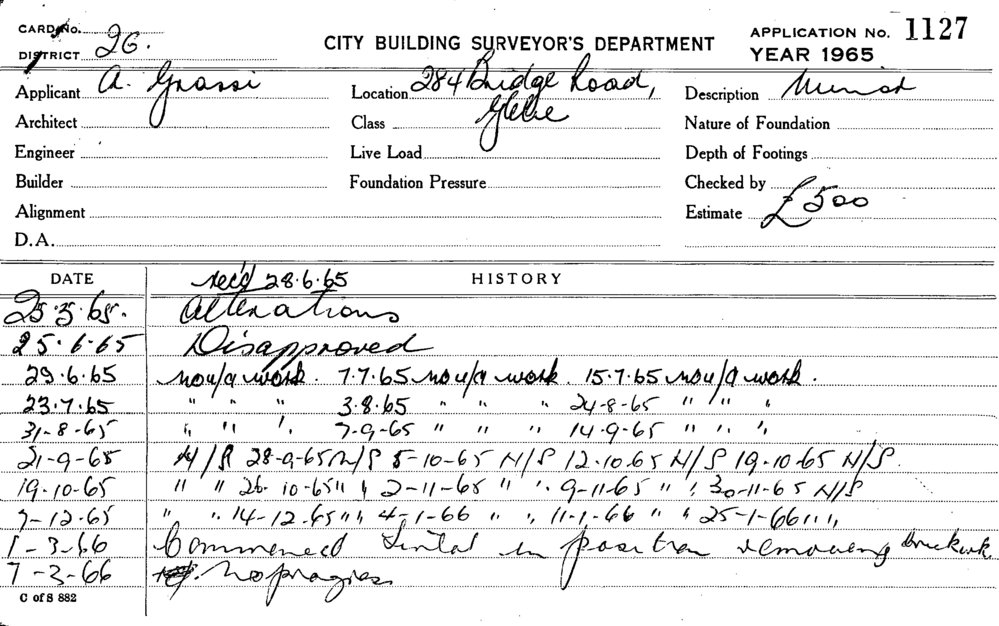 CARD No.
DISTRICT 26.
CITY BUILDING SURVEYOR'S DEPARTMENT
APPLICATION No. 1127
YEAR 1965
Applicant A. Grassi
Location 284 Bridge Road, Glebe
Description
Architect
Class
Nature of Foundation
Engineer
Live Load
Depth of Footings
Builder
Foundation Pressure
Checked by
Alignment
Estimate £500
D.A.
DATE rec'd 28.6.65 HISTORY
25.3.65. Alterations
25.6.65 Disapproved
29.6.65 no u/a work. 7.7.65 no u/a work. 15.7.65 no u/a work.
23.7.65 " " " 3.8.65 " " " 24-8-65 " " "
31-8-65 " " " 7-9-65 " " " 14-9-65 " " "
21-9-65 N/S 28-9-65 N/S 5-10-65 N/S 12.10.65 N/S 19.10.65 N/S.
19.10-65 " " 26.10-65 " " 2-11-65 " " 9-11-65 " " 30-11-65 N/S
7-12-65 " " 14-12-65 " " 4-1-66 " " 11-1-66 " " 25-1-66 " "
1-3-66 Commenced Lintal in position removing brickwk.
7-3-66 No progress
C of S 882